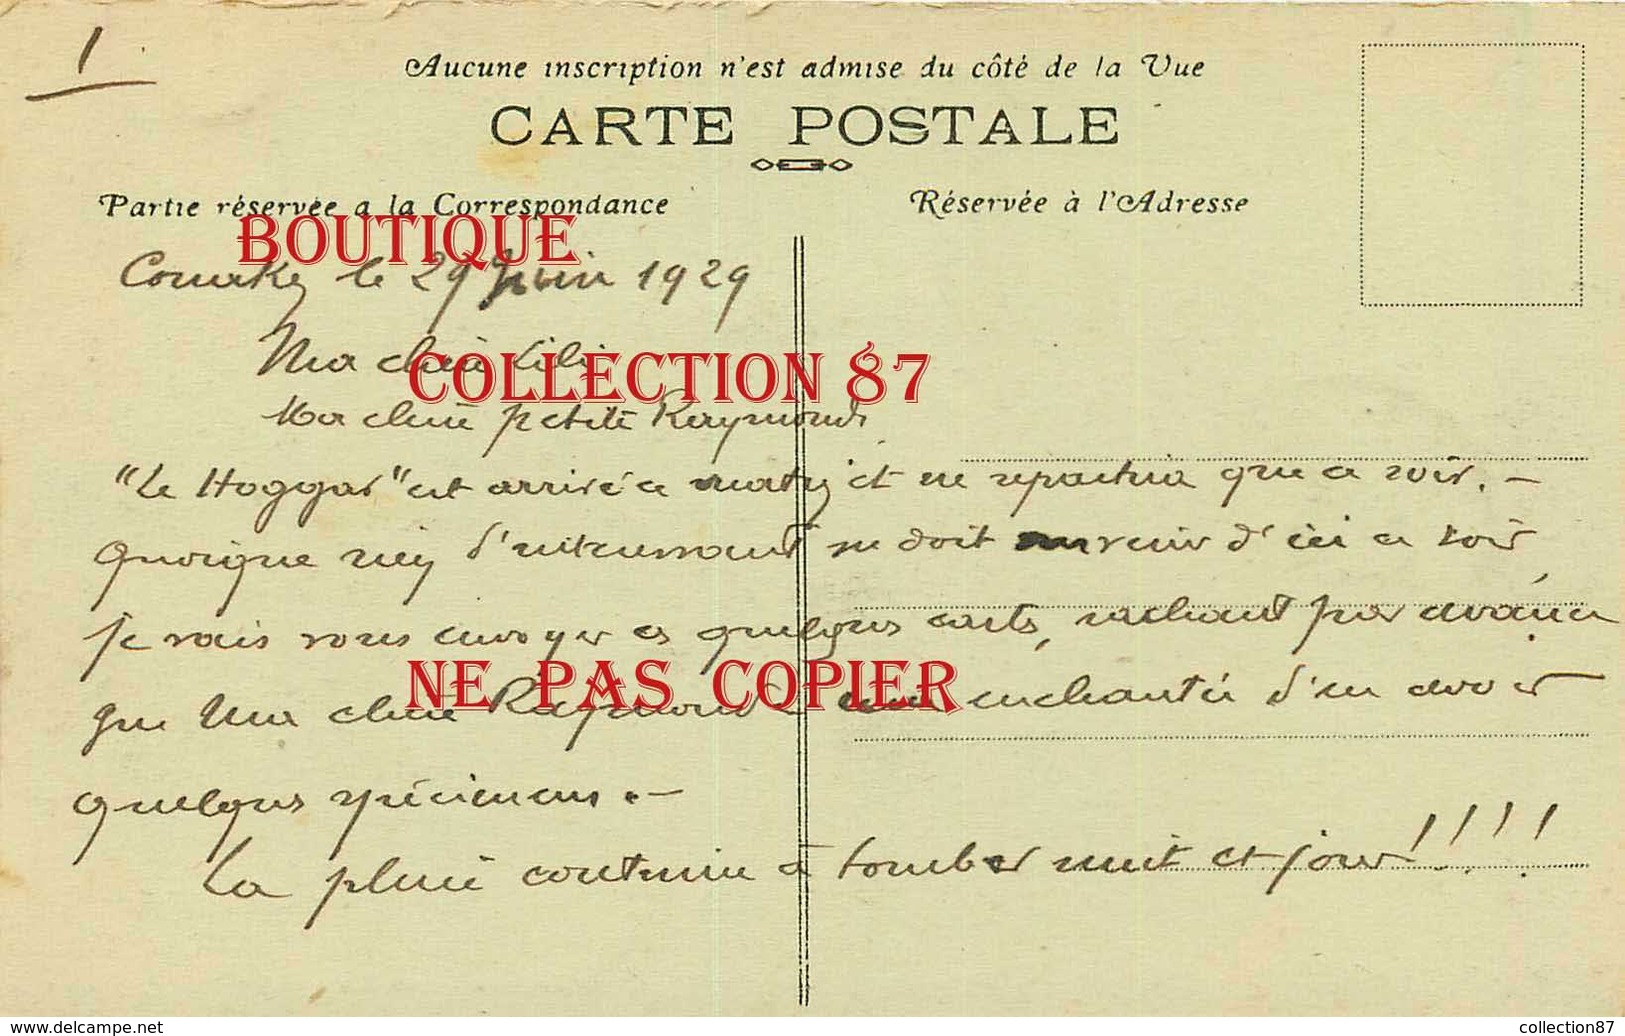 1
Aucune inscription n'est admise du côté de la Vue
CARTE POSTALE
Partie réservée a la Correspondance
Réservée à l'Adresse
BOUTIQUE
Conakry le 29 Juin 1929
Ma chère Lili
COLLECTION 87
Ma chère petite Raymonde
"Le Hoggar" est arrivé ce matin et ne repartira que ce soir. –
Quoique rien d'intéressant ne doit survenir d'ici ce soir
je vais vous envoyer ces quelques cartes, sachant par avance
NE PAS COPIER
que Ma chère Raymonde sera enchantée d'en avoir
quelques spécimens. –
La pluie continue à tomber nuit et jour !!!!
www.delcampe.net
collection87